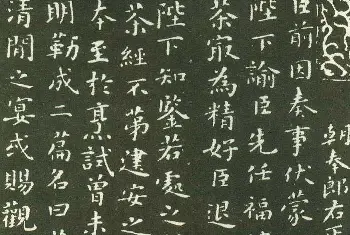 朝奉郎右正
臣前因奏事伏蒙
陛下諭臣先任福
茶㝡為精好臣退
陛下知鑒若處之
茶經不第建安之
本至於烹試曾未
明勒成二篇名曰
清閒之宴或賜觀